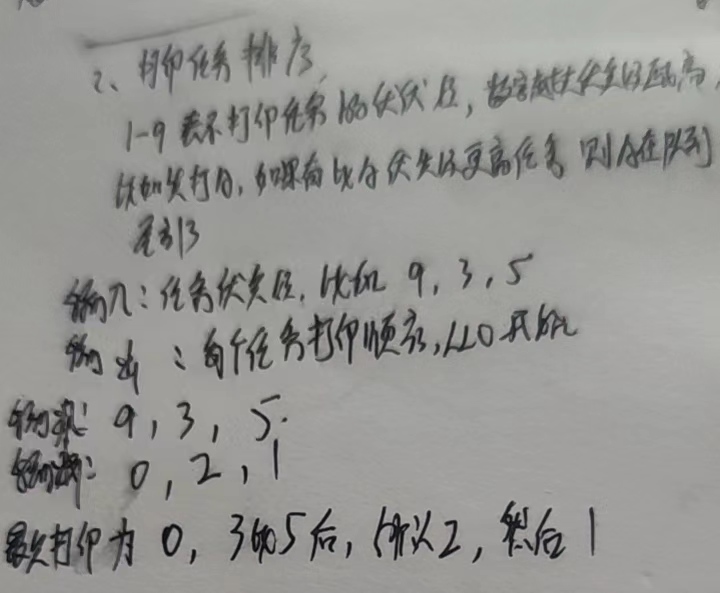 2、打印任务排序
1-9 表示打印任务的优先级，数字越大优先级越高，
比如先打A，如果有比A优先级更高任务 则A在队列
尾部
输入：任务优先级，比如 9，3，5
输出：每个任务打印顺序，以0开始
输入：9，3，5
输出：0，2，1
最先打印为 0，3在5后，所以2，然后1